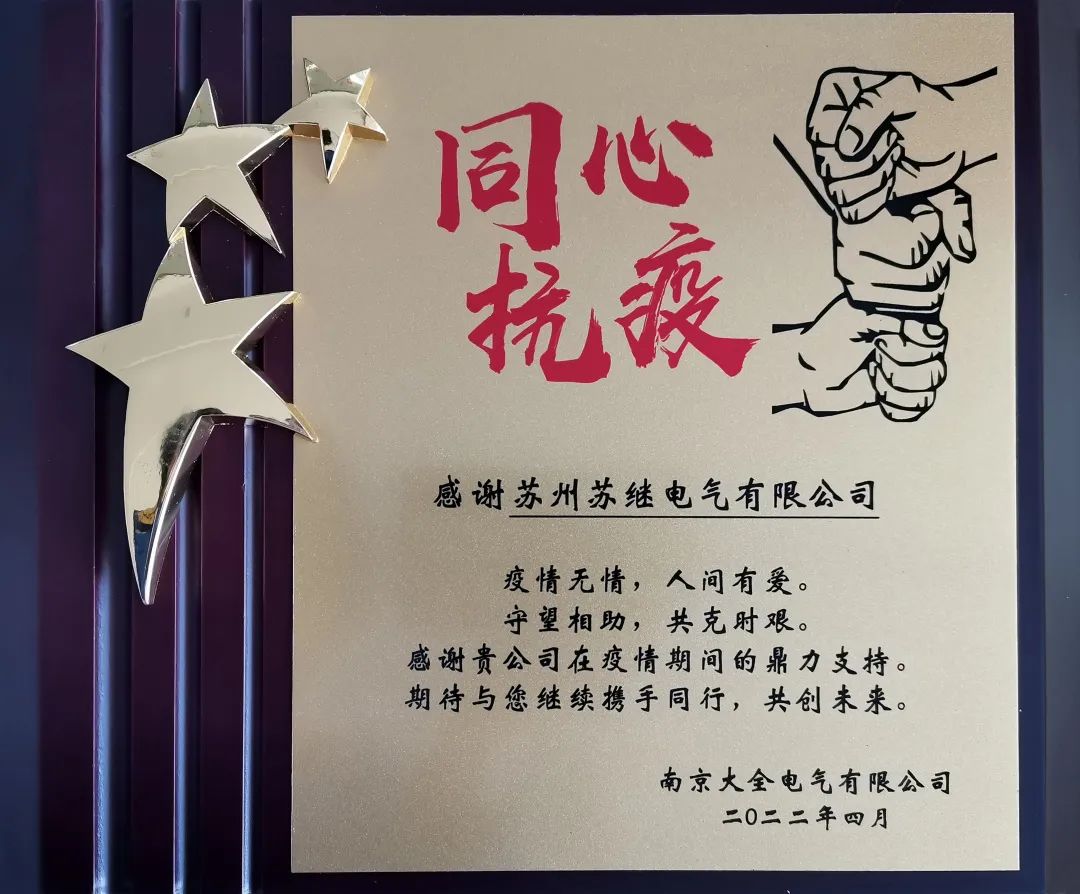 同心
抗疫
感谢苏州苏继电气有限公司
疫情无情，人间有爱。
守望相助，共克时艰。
感谢贵公司在疫情期间的鼎力支持。
期待与您继续携手同行，共创未来。
南京大全电气有限公司
二0二二年四月